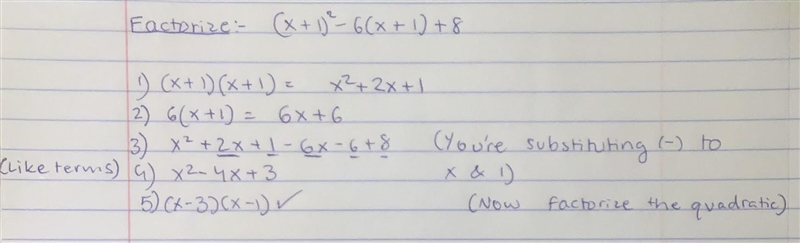 Factorize:- (x+1)² - 6(x+1) + 8
1) (x+1)(x+1) = x² + 2x + 1
2) 6(x+1) = 6x + 6
3) x² + 2x + 1 - 6x - 6 + 8 (You're substituting (-) to
(Like terms) 4) x² - 4x + 3 x & 1)
5) (x-3)(x-1) ✓ (Now factorize the quadratic)